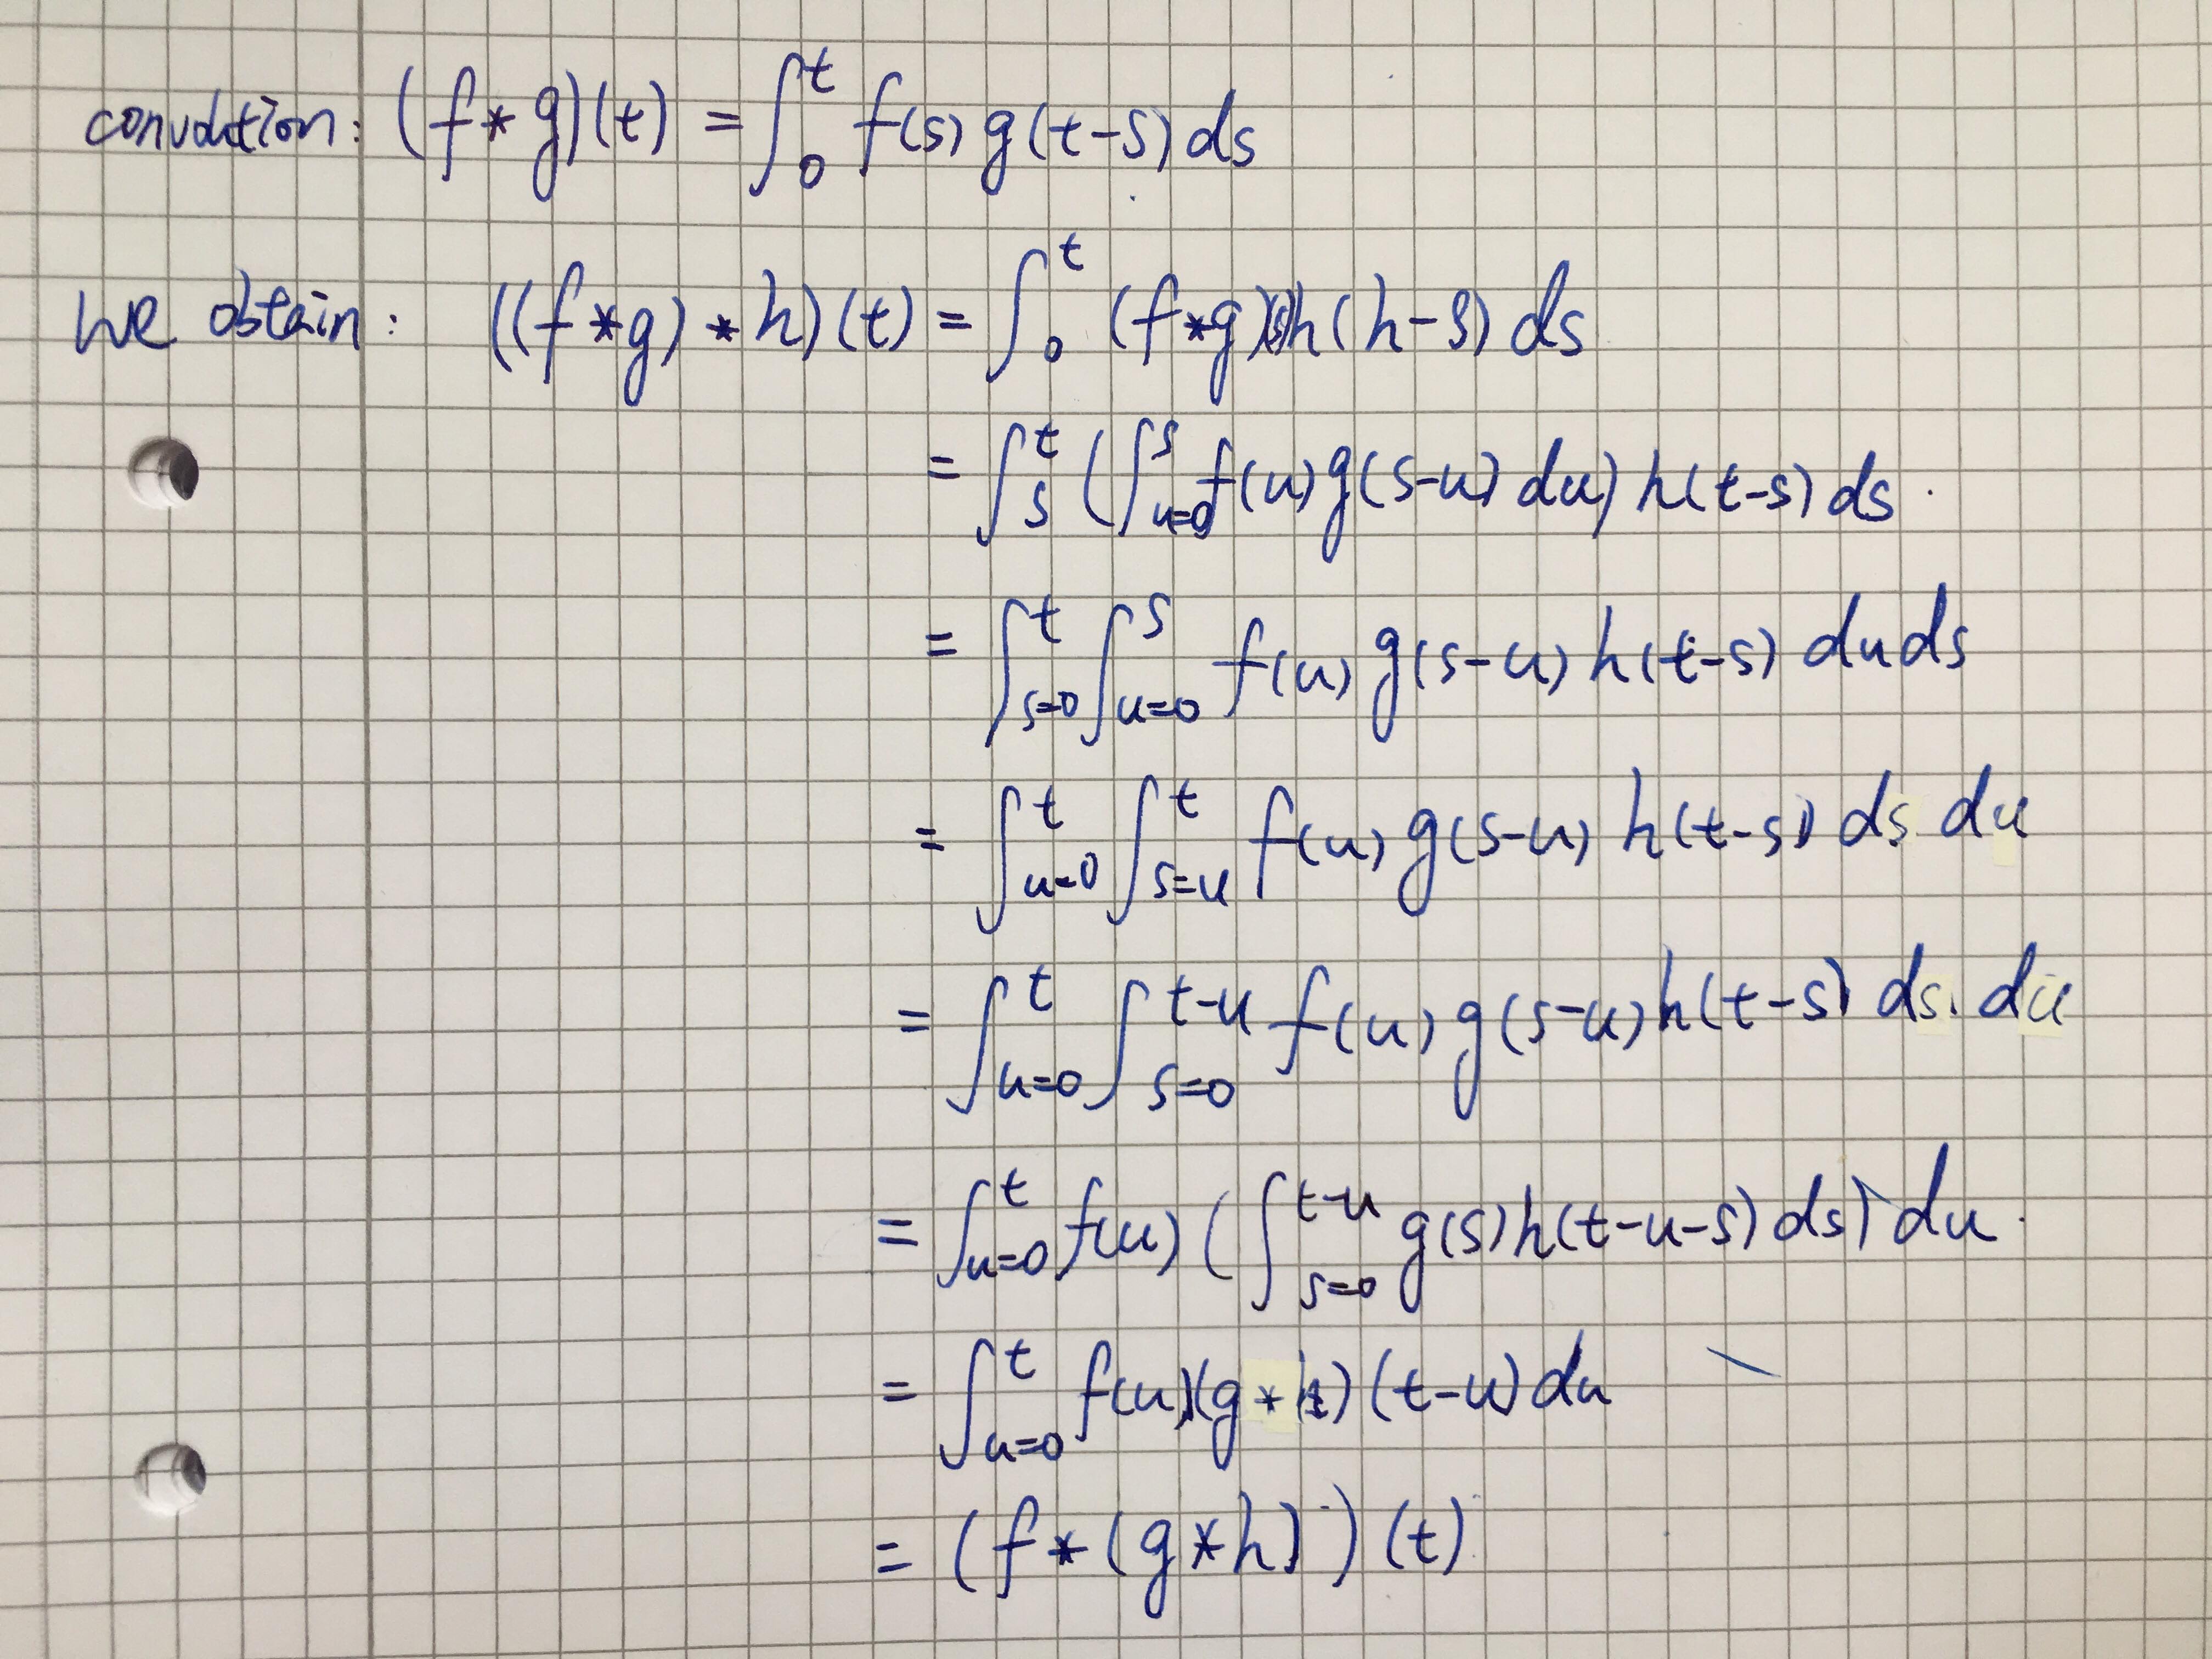 convolution: (f * g)(t) = ∫_0^t f(s) g(t-s) ds
We obtain: ((f * g) * h)(t) = ∫_0^t (f * g)(s)h(h-s) ds
= ∫_s^t (∫_{u=0}^s f(u) g(s-u) du) h(t-s) ds.
= ∫_{s=0}^t ∫_{u=0}^s f(u) g(s-u) h(t-s) du ds
= ∫_{u=0}^t ∫_{s=u}^t f(u) g(s-u) h(t-s) ds du
= ∫_{u=0}^t ∫_{s=0}^{t-u} f(u) g(s-u) h(t-s) ds. du
= ∫_{u=0}^t f(u) (∫_{s=0}^{t-u} g(s)h(t-u-s) ds) du.
= ∫_{u=0}^t f(u)(g * h)(t-u) du
= (f * (g * h))(t)